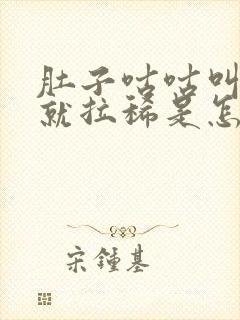 肚子咕咕叫
就拉稀是怎
宋锺基